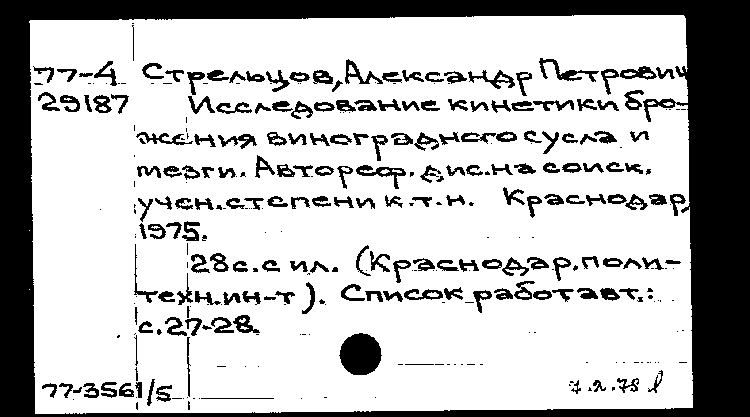 77-4 Стрельцов, Александр Петрович
29187 Исследование кинетики бро-
жения виноградного сусла и
мезги. Автореф. дис. на соиск.
учен. степени к.т.н. Краснодар,
1975.
28 с. с ил. (Краснодар. поли-
техн. ин-т). Список работ авт.:
с. 27-28.
77-3561/5 7.2.78